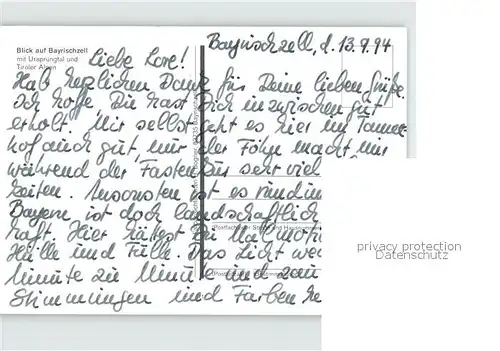 Blick auf Bayrischzell
mit Ursprungtal und
Tiroler Alpen
Bayrischzell, d. 13.9.94
Liebe Lore!
Hab herzlichen Dank für Deine lieben Grüße.
Ich hoffe Du hast Dich inzwischen gut
erholt. Mir selbst geht es hier im Tanner-
hof auch gut, nur der Föhn macht mir
während der Fastenkur sehr viel
keiten. Ansonsten ist es rund um
Bayern ist doch landschaftlich
haft. Hier hättest Du Malmotive
Hülle und Fülle. Das Licht wech
Minute zu Minute und zau
Stimmungen und Farben he
privacy protection
Datenschutz